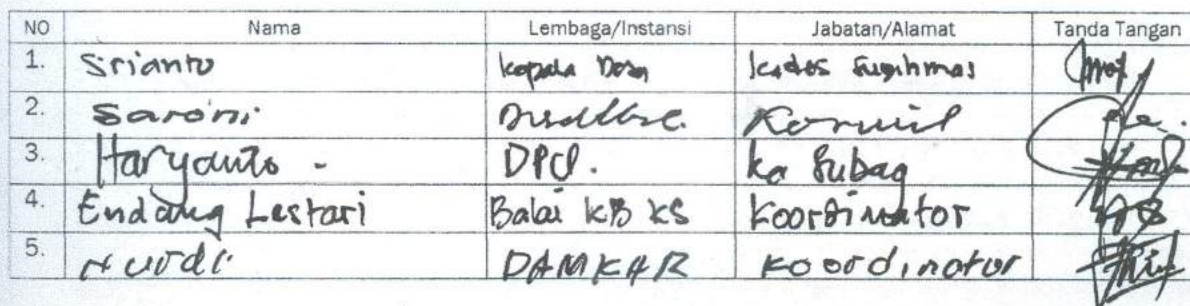 NO Nama Lembaga/Instansi Jabatan/Alamat Tanda Tangan
1. Srianto Kepala Desa Kades Sugihmas
2. Saroni Koramil
3. Haryanto - Ka Subag
4. Endang Lestari Balai KB KS Koordinator
5. DAMKAR Koordinator